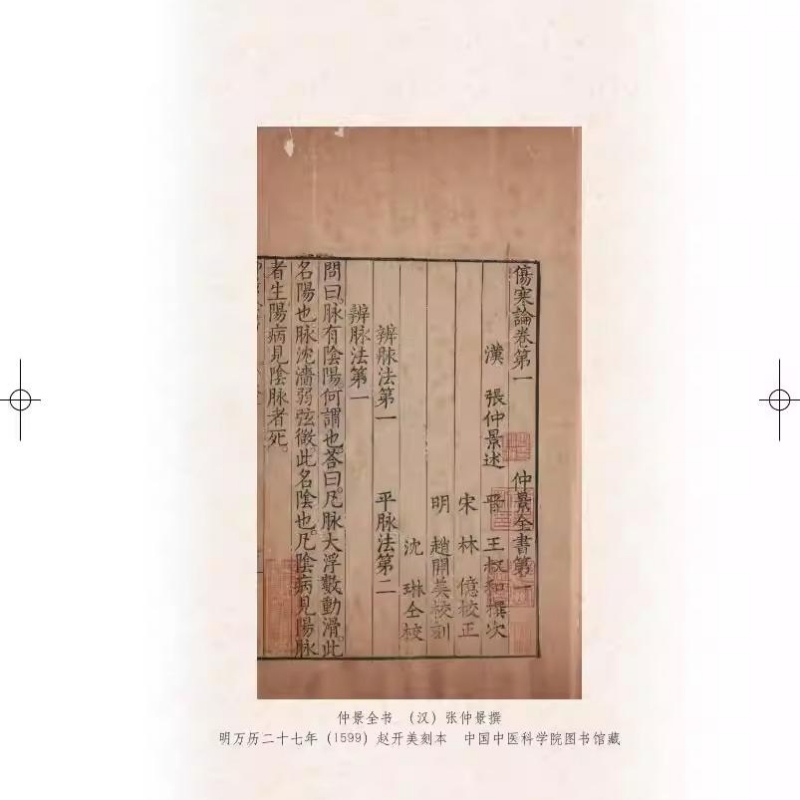 傷寒論卷第一 仲景全書第一
漢 張仲景述 晉 王叔和撰次
宋 林 億校正
明 趙開美校刻
沈 琳仝校
辨脉法第一 平脉法第二
辨脉法第一
問曰。脉有陰陽何謂也。荅曰。凡脉大浮數動滑。此
名陽也。脉沈濇弱弦微。此名陰也。凡陰病見陽脉
者生。陽病見陰脉者死。
仲景全书 （汉）张仲景撰
明万历二十七年（1599）赵开美刻本 中国中医科学院图书馆藏